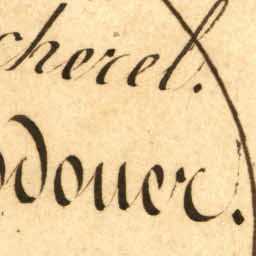 cherel.
douer.